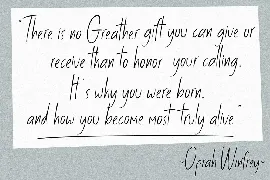 "There is no Greather gift you can give or
receive than to honor your calling.
It's why you were born.
and how you become most truly alive"
Oprah Winfrey-